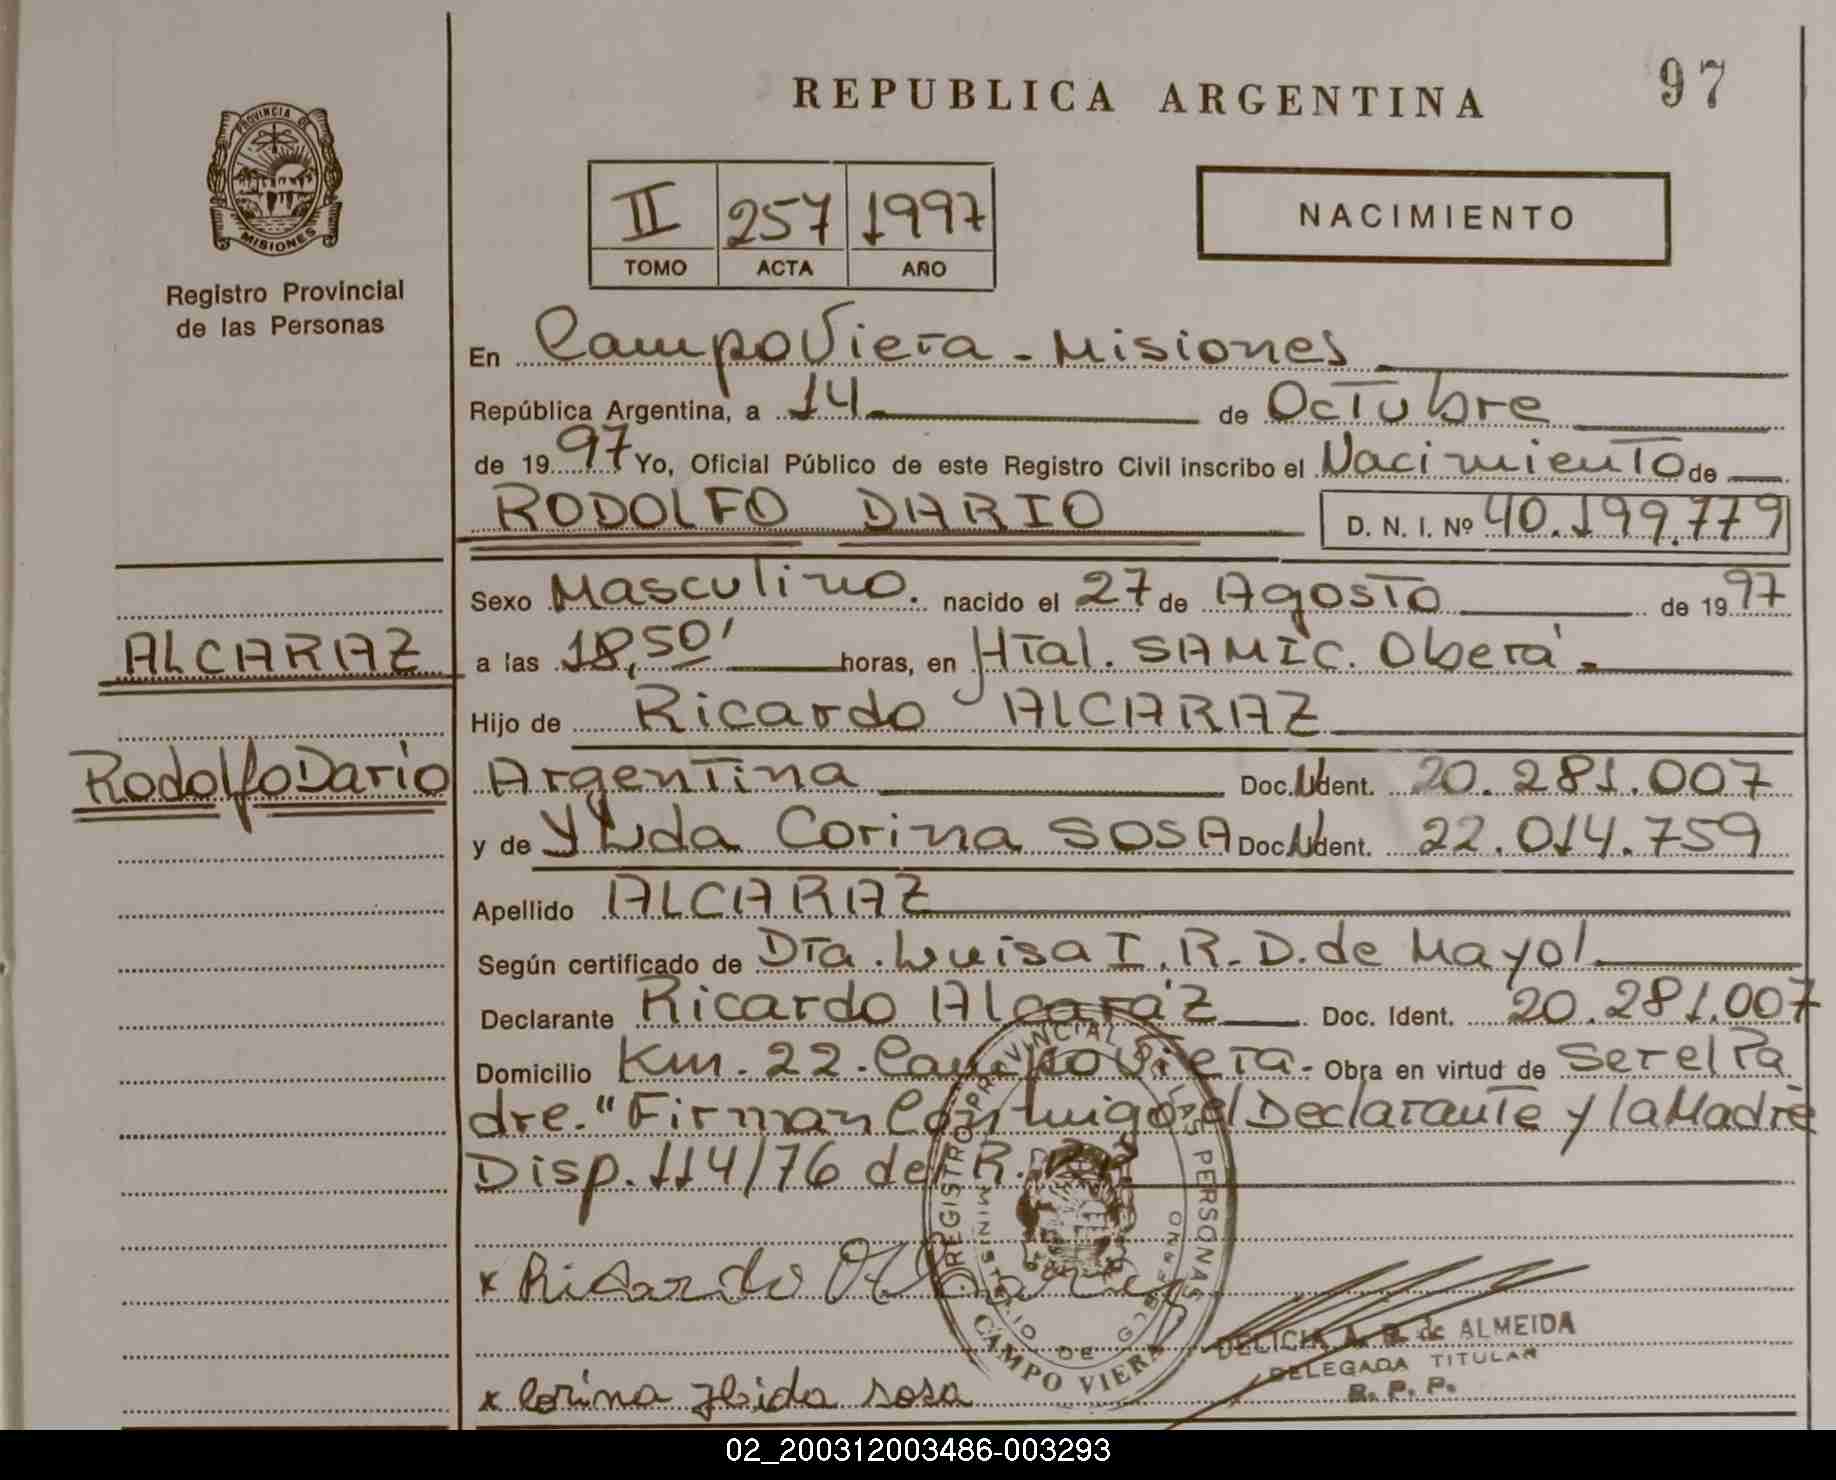 REPUBLICA ARGENTINA
97
PROVINCIA DE
MISIONES
Registro Provincial
de las Personas
II 257 1997
TOMO ACTA AÑO
NACIMIENTO
En Campo Viera - Misiones
República Argentina, a 14 de Octubre
de 1997 Yo, Oficial Público de este Registro Civil inscribo el Nacimiento de
RODOLFO DARIO D. N. I. Nº 40.199.779
Sexo Masculino. nacido el 27 de Agosto de 1997
ALCARAZ
a las 18,50' horas, en Htal. SAMIC. Oberá.-
Hijo de Ricardo ALCARAZ
Rodolfo Dario
Argentina Doc. Ident. 20.281.007
y de Corina SOSA Doc. Ident. 22.014.759
Apellido ALCARAZ
Según certificado de Dra. Luisa I. R. D. de Mayol.
Declarante Ricardo Alcaráz Doc. Ident. 20.281.007
Domicilio Km. 22. Campo Viera.- Obra en virtud de Ser el Pa
dre. "Firman Conmigo el Declarante y la Madre
Disp. 114/76 del R.
REGISTRO PROVINCIAL DE LAS PERSONAS
MINISTERIO DE GOBIERNO
CAMPO VIERA
x Ricardo Alcaraz
DELICIA A. B. de ALMEIDA
DELEGADA TITULAR
R. P. P.
x Corina Ylida Sosa
02_200312003486-003293